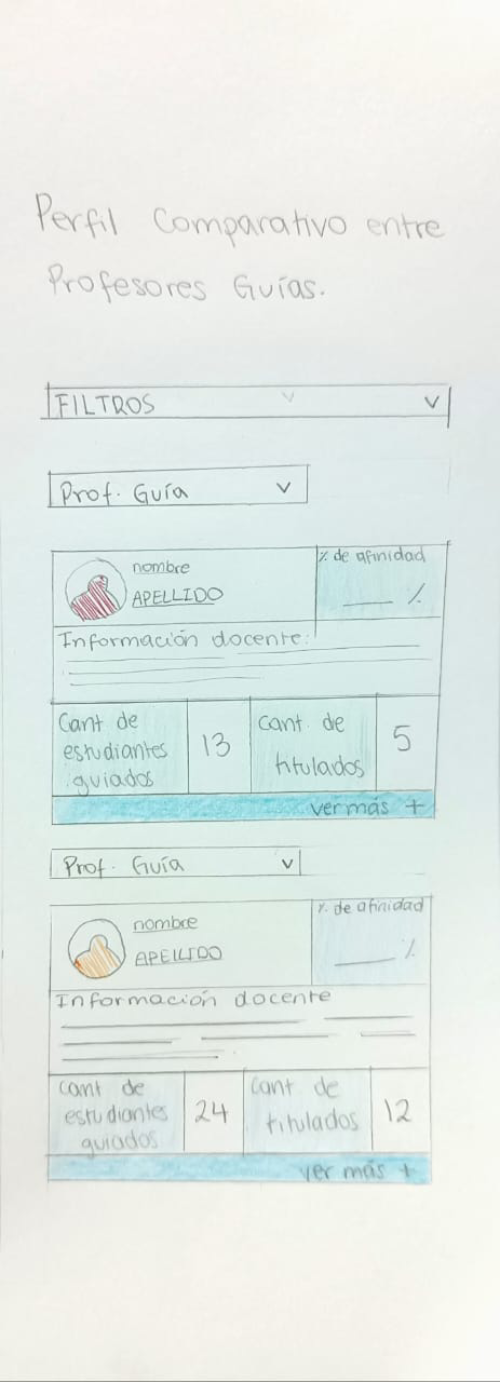 Perfil Comparativo entre
Profesores Guías.
FILTROS
Prof. Guía
nombre
APELLIDO
% de afinidad
%
Información docente:
Cant de
estudiantes
guiados
13
cant de
titulados
5
ver más +
Prof. Guía
nombre
APELLIDO
% de afinidad
%
Información docente
cant de
estudiantes
guiados
24
cant de
titulados
12
ver más +